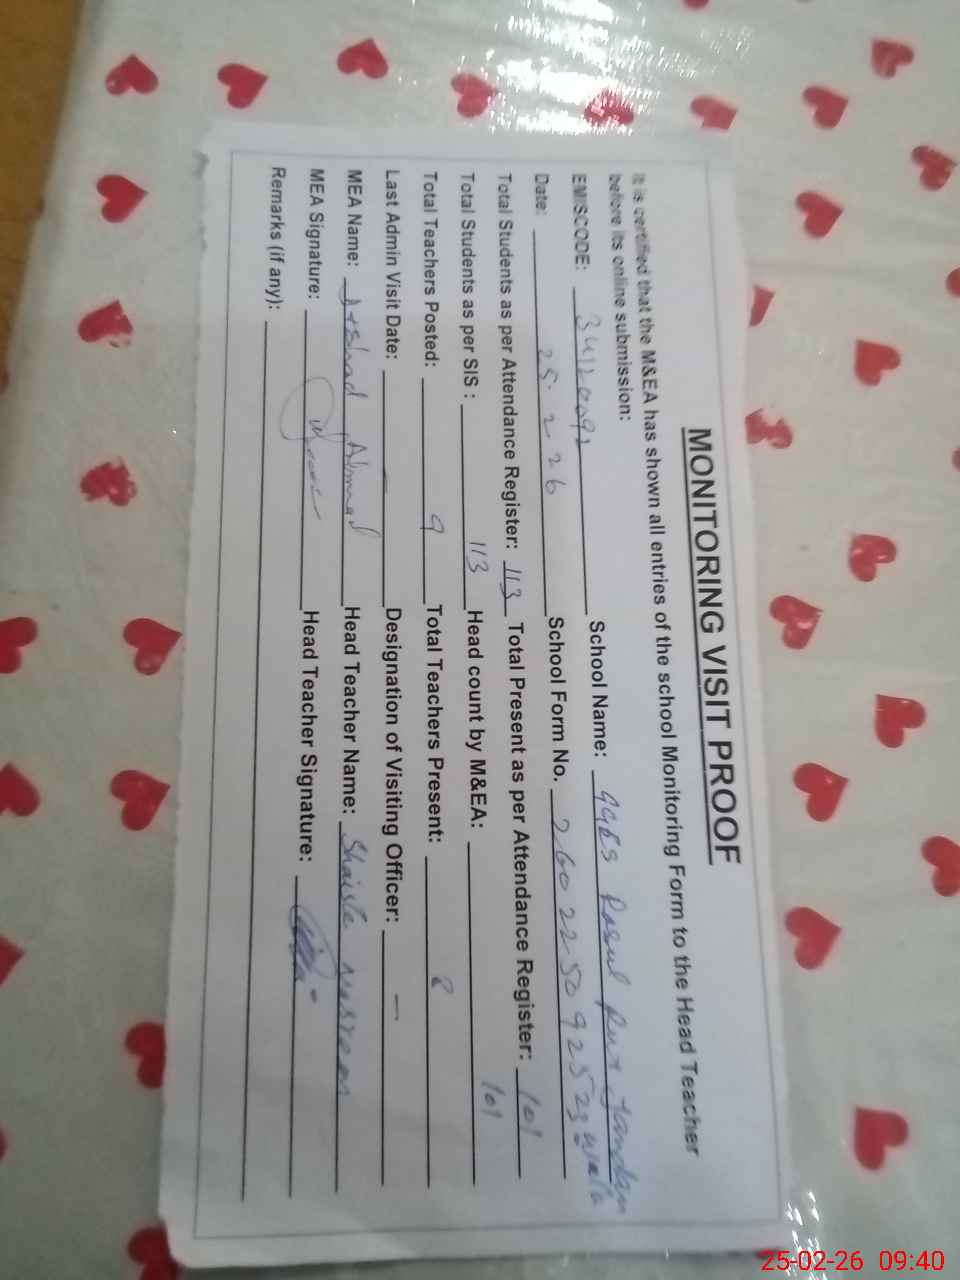 MONITORING VISIT PROOF
It is certified that the M&EA has shown all entries of the school Monitoring Form to the Head Teacher
before its online submission:
EMISCODE: 34120092 School Name: GGES Rasul Pur Jandan
wala
Date: 25-2-26 School Form No. 260225092523
Total Students as per Attendance Register: 113 Total Present as per Attendance Register: 101
Total Students as per SIS : 113 Head count by M&EA: 101
Total Teachers Posted: 9 Total Teachers Present: 8
Last Admin Visit Date: — Designation of Visiting Officer: —
MEA Name: Arshad Ahmad Head Teacher Name: Shaista Nasreen
MEA Signature: Head Teacher Signature:
Remarks (if any):
25-02-26 09:40